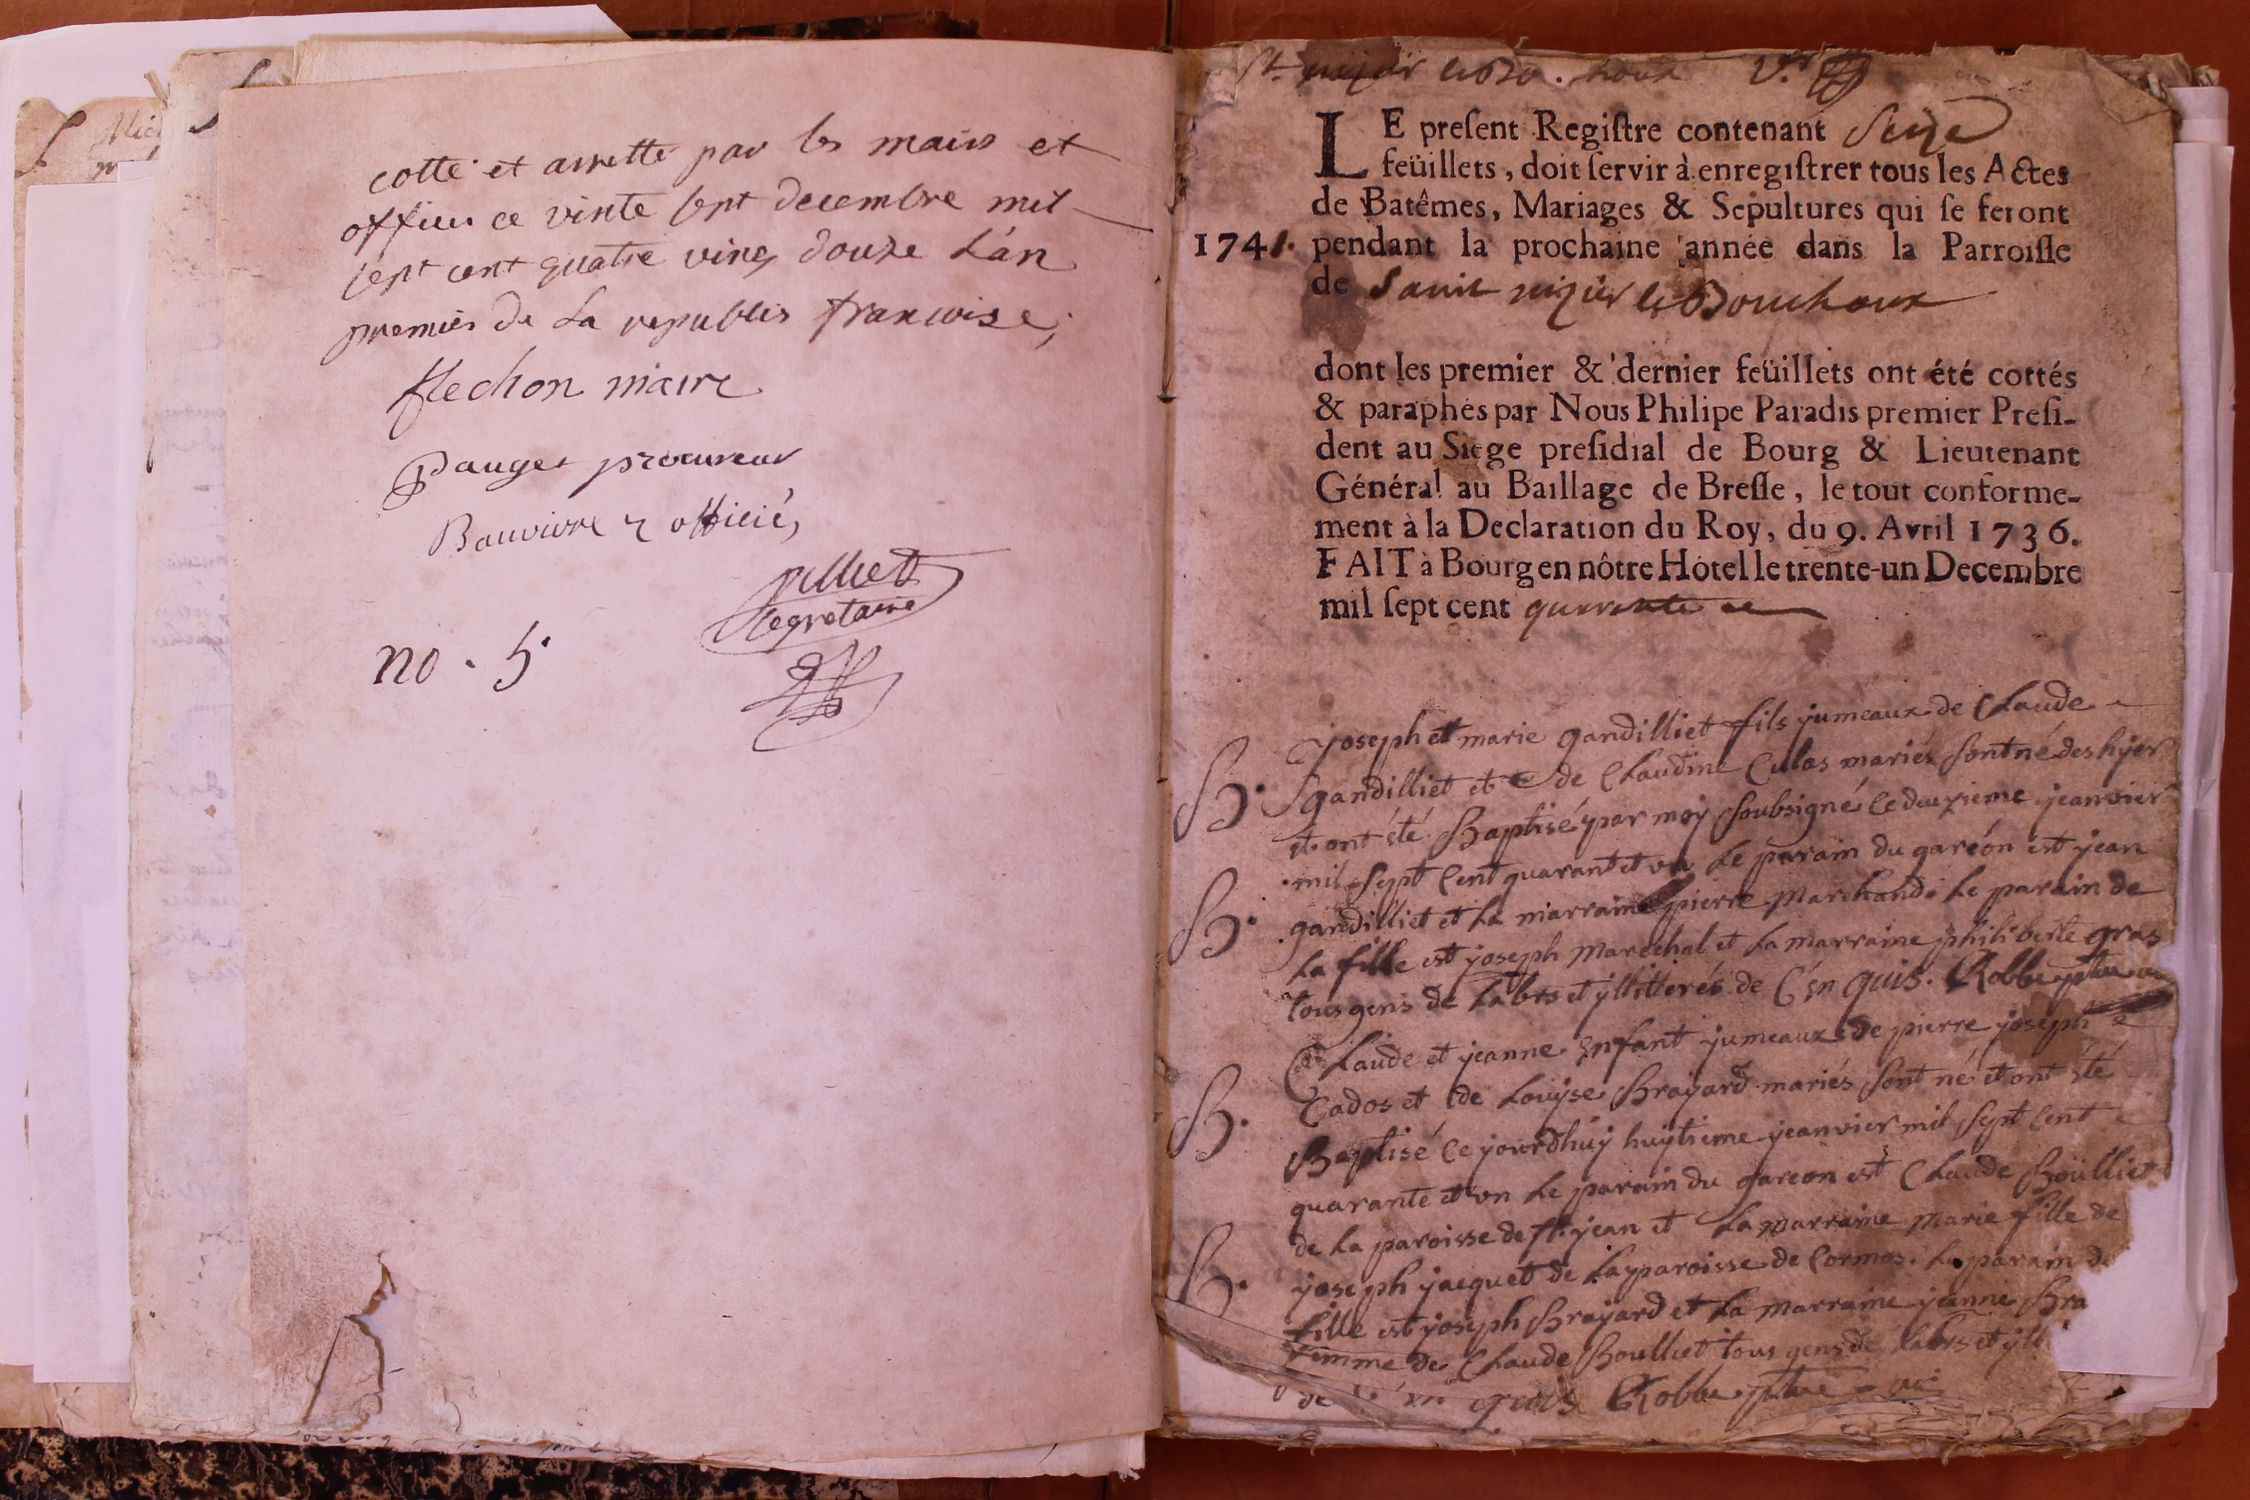 cotté et arretté par les maire et
officier ce vinte sept decembre mil
sept cent quatre ving douze L'an
premier de La republis francoise;
flechon maire
pauget procureur
Bauvivre officié
pilliet
segretaire
no. 5.
St. nizier le Bou.houx
LE preſent Regiſtre contenant Seize
feüillets, doit ſervir à enregiſtrer tous les Actes
de Batêmes, Mariages & Sepultures qui ſe feront
1741. pendant la prochaine année dans la Parroiſſe
de Saint nizier le Bouchoux
dont les premier & dernier feüillets ont été cottés
& paraphés par Nous Philipe Paradis premier Preſi-
dent au Siege preſidial de Bourg & Lieutenant
Général au Baillage de Breſſe, le tout conforme-
ment à la Declaration du Roy, du 9. Avril 1736.
FAIT à Bourg en nôtre Hôtel le trente-un Decembre
mil ſept cent quarante
joseph et marie gandilliet fils jumeaux de Claude
B. gandilliet et de Claudine Culas mariés sont né des hyer
et ont été Baptisé par moy soubsigné ce deuxieme jeanvier
mil sept cent quarant et un Le parain du garcon est jean
B. gandilliet et La marraine pierre marchand. Le parain de
La fille est joseph marechal et La marraine philiberte gras
tous gens de Labrs et yllitterés de C'en quis. Robbe ptre
Claude et jeanne Enfant jumeaux de pierre joseph
Cados et de Louyse Brayard mariés sont né et ont été
B. Baptisé ce jourdhuy huytieme jeanvier mil sept cent
quarante et un Le parain du garcon est Claude Boülliet
de La paroisse de st. jean et La marraine marie fille de
B. joseph jacquet de La paroisse de Cormos. Le parain de
fille est joseph Brayard et La marraine jeanne Bra
femme de Claude Boulliet tous gens de Labrs et ylli
de quis Robbe ptre